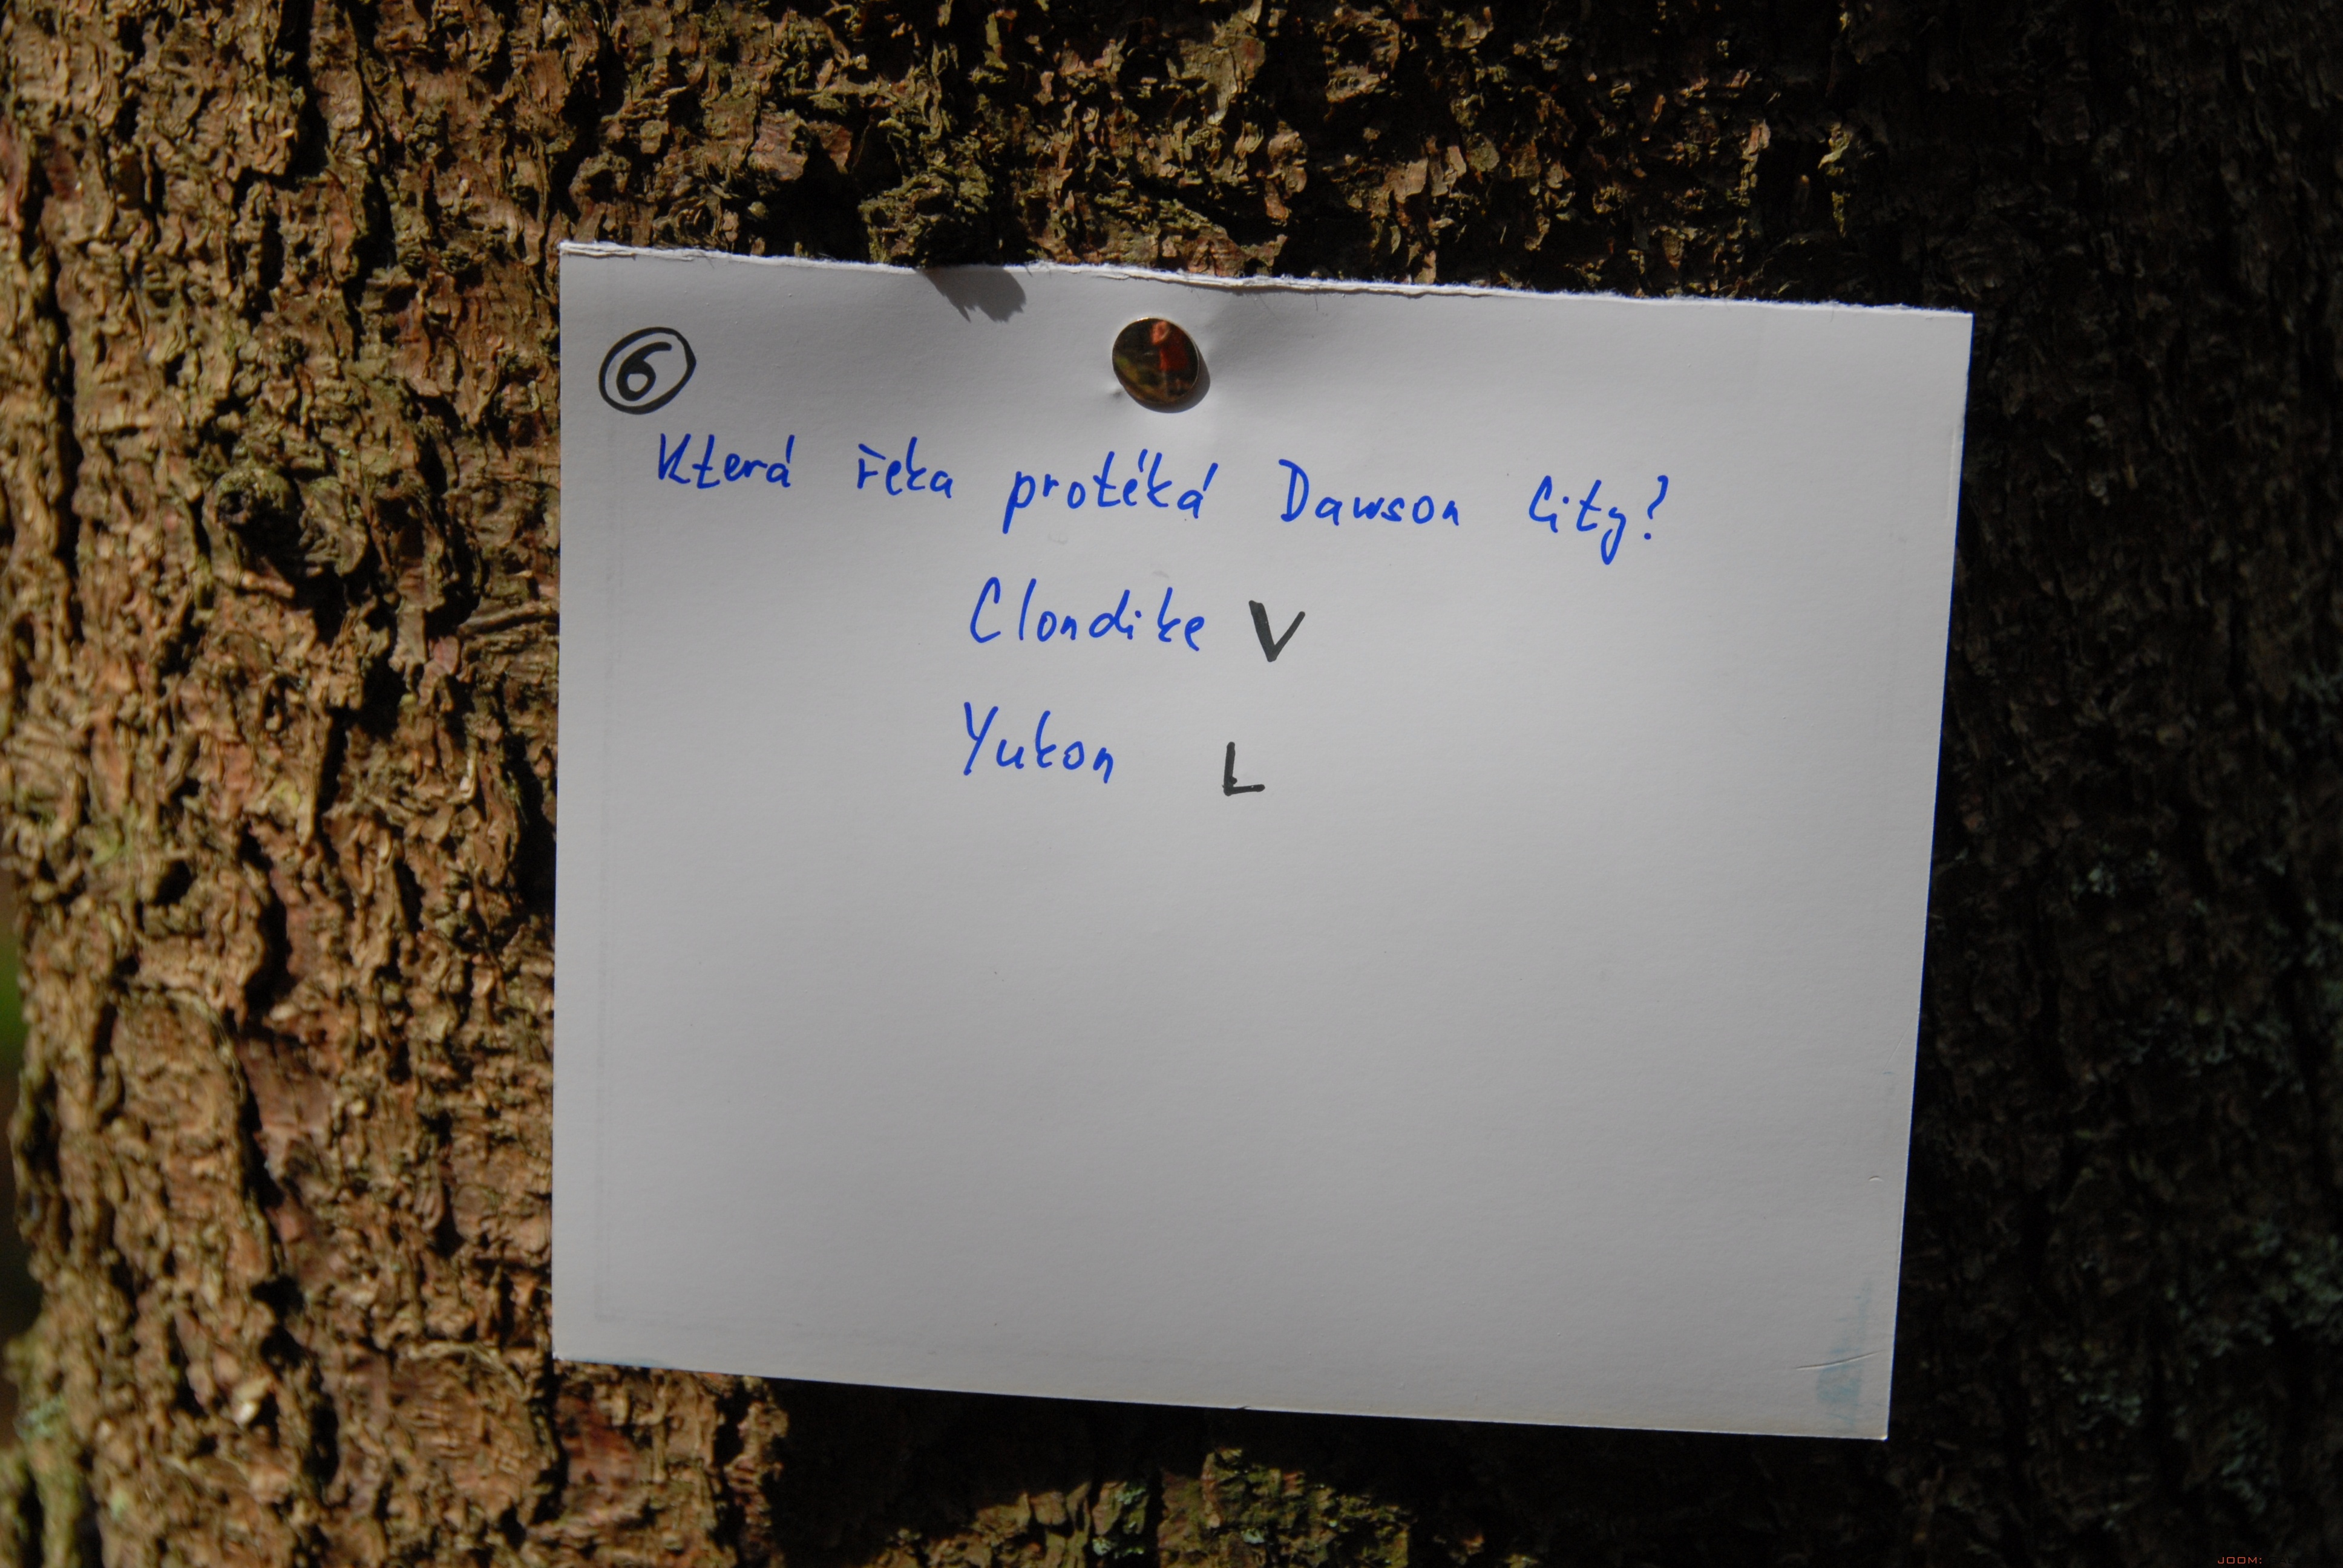 6
Která řeka protéká Dawson City?
Clondike V
Yukon L
JOOM: